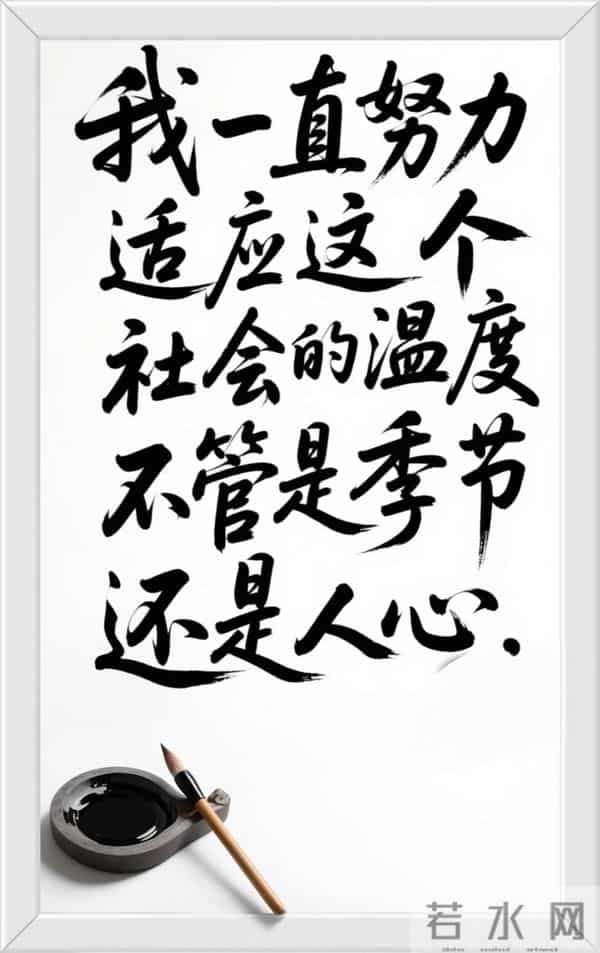 我一直努力
适应这个
社会的温度
不管是季节
还是人心.
若水网